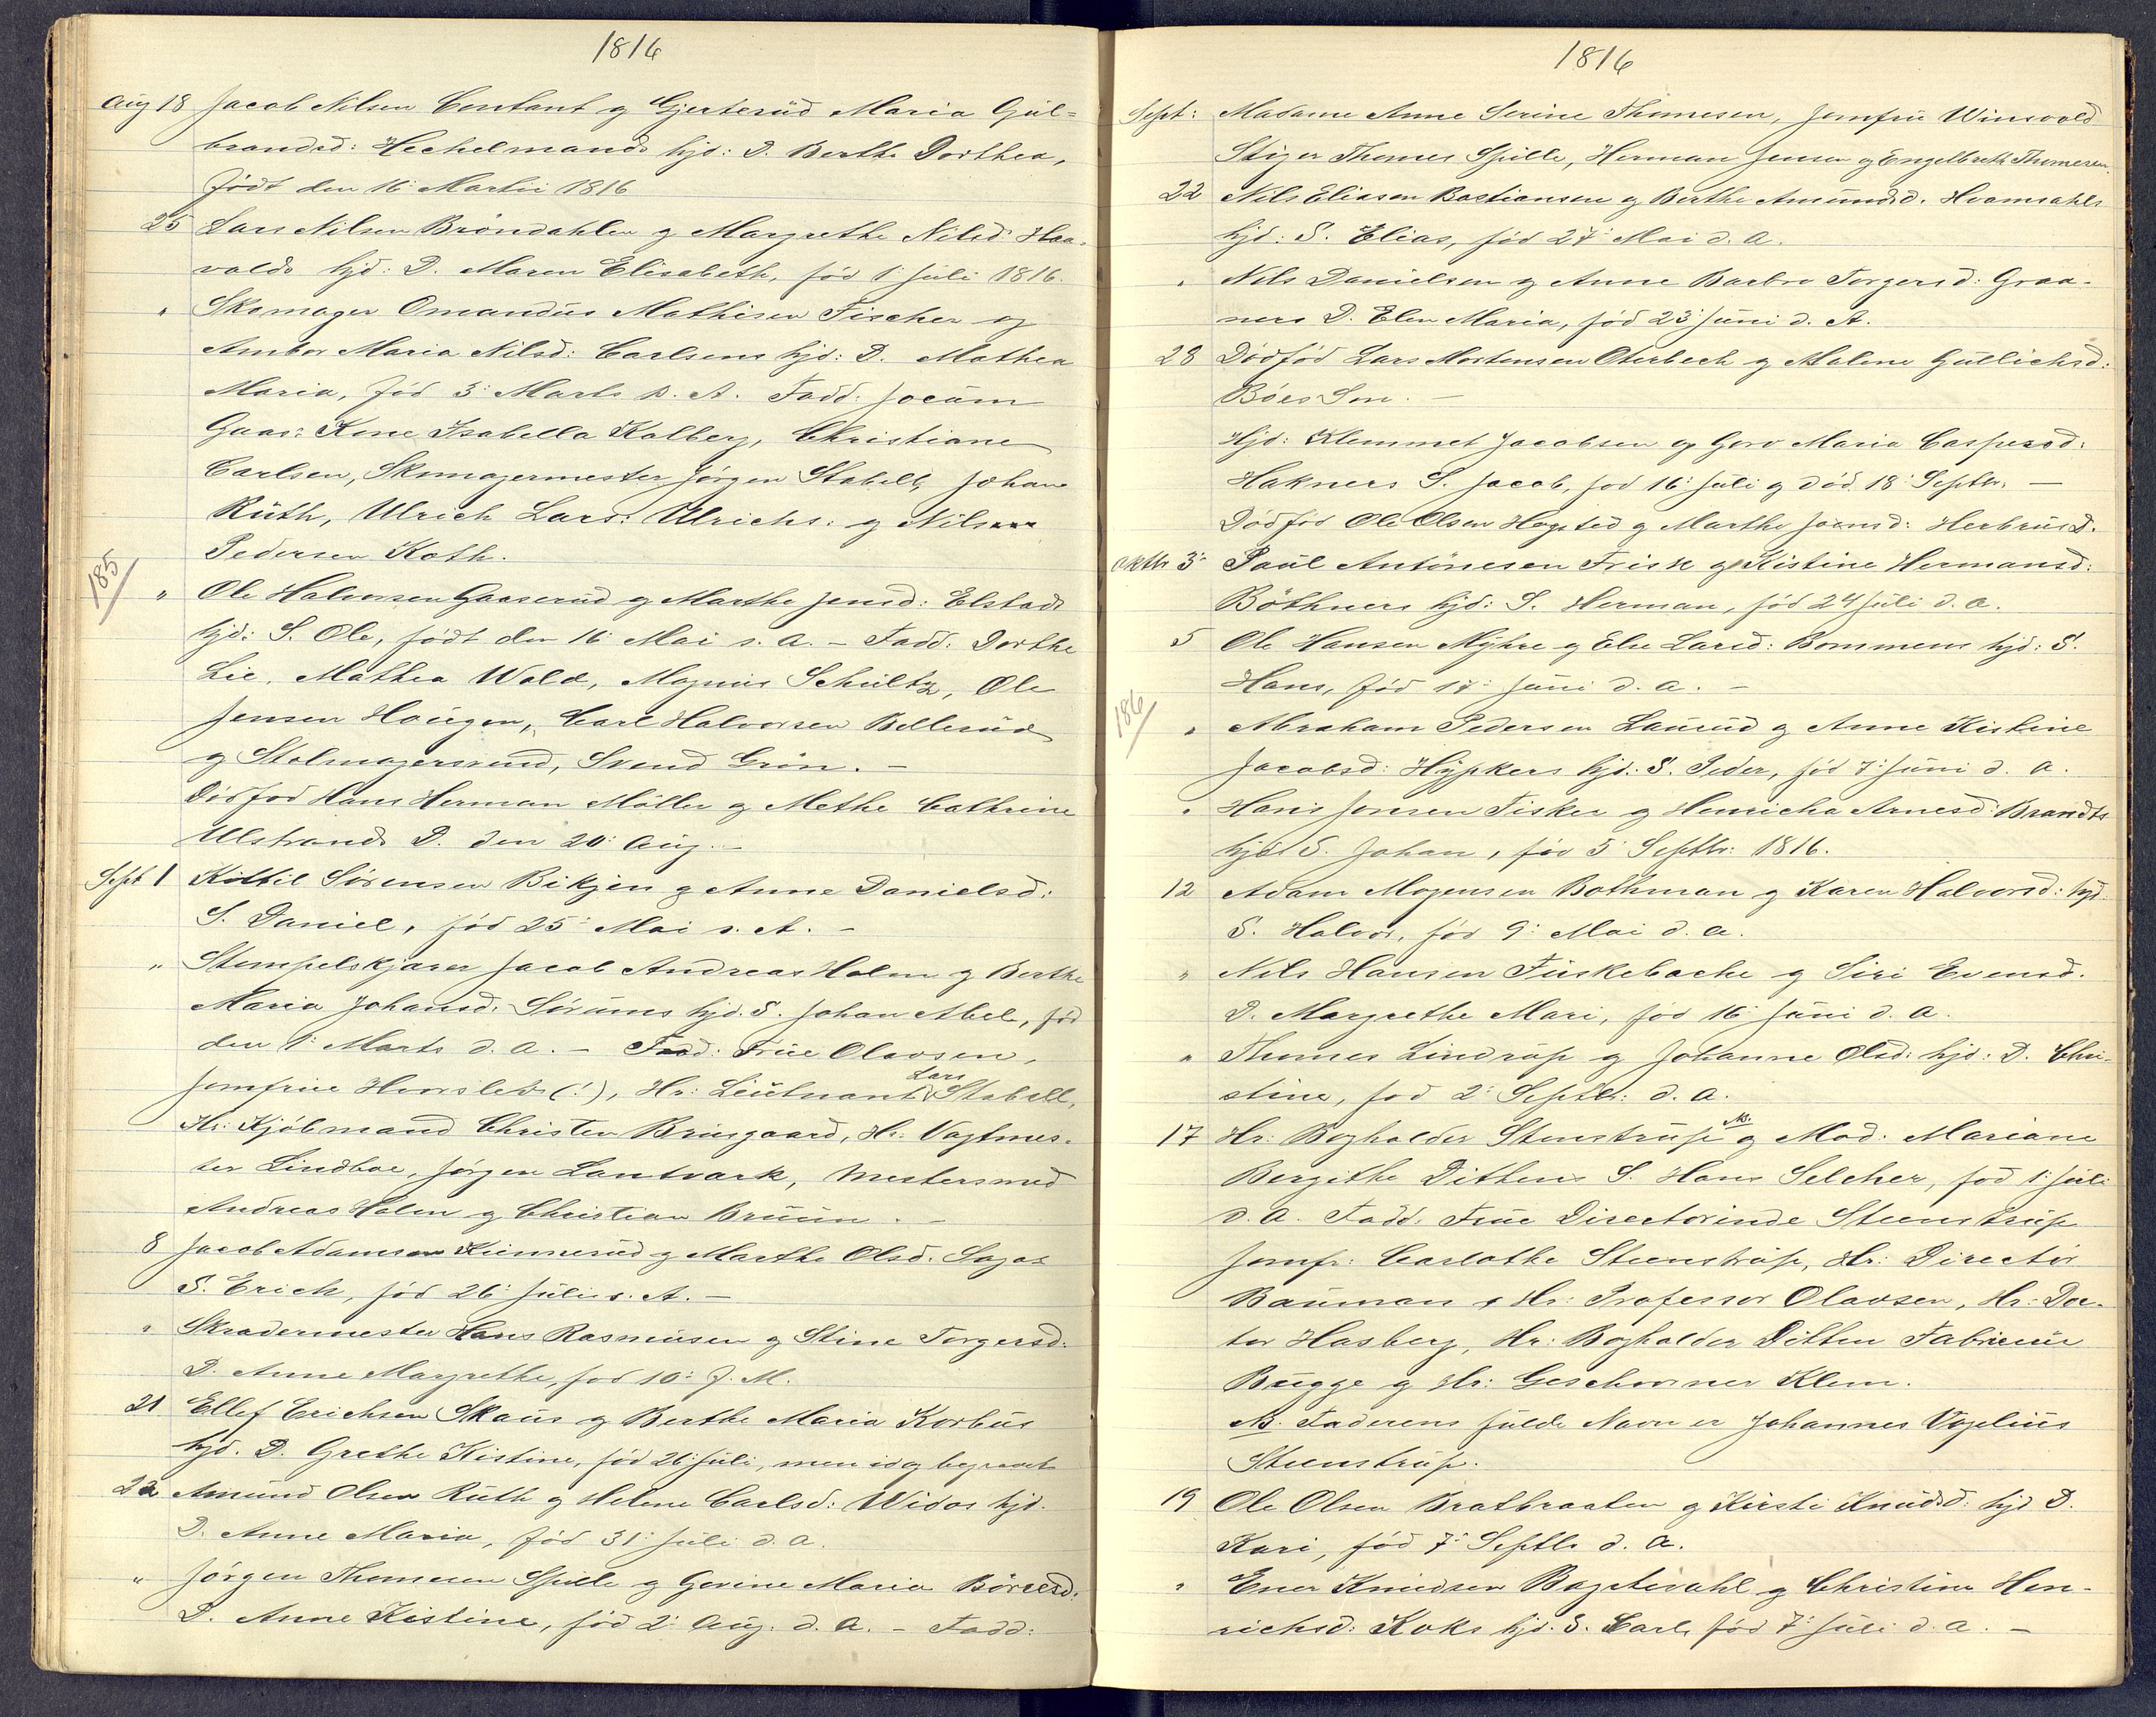 1816
Aug 18 Jacob Nilsen Constant og Gjerterud Maria Gul=
brandsd: Hechelmands hjd: D. Berthe Dorthea,
født den 16: Martii 1816
25 Lars Nilsen Bröndahlen og Margrethe Nilsd: Haa-
valds hjd: D. Maren Elisabeth, fød 1: Juli 1816.
" Skomager Omandus Mathisen Fischer og
Ambor Maria Nilsd: Carlsens hjd: D. Mathea
Maria, fød 3: Marts s. A. Fadd: Jocum
Gaas: Kone, Isabella Kalberg, Christiane
Carlsen, Skomagermester Jörgen Stabell, Johan
Ruth, Ulrich Lars: Ulrichs: og Nils
Pedersen Koth.
185
" Ole Halvorsen Gaaserud og Marthe Jensd: Elstads
hjd: S. Ole, født den 16 Mai s. a. - Fadd: Dorthe
Lie, Mathea Wold, Magnus Schultz, Ole
Jensen Haugen, Carl Halvorsen Bellerud
og Stolmagersvend, Svend Grön. -
Dödfød Hans Herman Möller og Methe Cathrine
Ulstrands D. den 20: Aug. -
Sept 1 Kittil Sörensen Bikjen og Anne Danielsd:
S. Daniel, fød 25: Mai s. A. -
" Stempelskjærer Jacob Andreas Holm og Berthe
Maria Johansd: Sörums hjd. S. Johan Abel, fød
den 1: Marts d. a. - Fad: Frue Olavsen,
Jomfrue Hvorslets (!), Hr: Lieutnant Lars Stabell,
Hr: Kjöbmand Christen Bruusgaard, Hr: Vagtmes-
ter Lindboe, Jörgen Lantvark, Mestersmed
Andreas Holm og Christian Bruun. -
8 Jacob Adamsen Kunnerud og Marthe Olsd. Sagas
S. Erich, fød 26: Juli s. A. -
" Skrædermester Hans Rasmusen og Stine Torgersd:
D. Anne Margrethe, fød 10: J. M.
21. Ellef Erichsen Skaus og Berthe Maria Korbus
hjd. D. Grethe Kistine, fød 26: Juli, men idag begravet
22 Amund Olsen Ruth og Helene Carlsd: Widos hjd.
D. Anne Maria, fød 31: Juli d. a.
" Jörgen Thomesen Spille og Gorine Maria Börresd:
D. Anne Kistine, fød 2: Aug. d. a. - Fadd:
1816
Sept: Madame Anne Serine Thomesen, Jomfru Winsvold
Stiger Thomes Spille, Herman Jensen og Engelbreth Thomesen.
22 Nils Eliasen Bastiansen og Berthe Amundsd. Hvamsahls
hjd: S. Elias, fød 27: Mai d. A.
" Nils Danielsen og Anne Barbro Torgersd: Graa-
ners D. Elen Maria, fød 23: Juni d. A.
28 Dödfød Lars Mortensen Oterbech og Malene Gullichsd:
Böes Søn. -
Hjd: Klemmet Jacobsen og Goro Maria Caspersd:
Hakners S. Jacob, fød 16: Juli og død 18: Septbr. -
Dödfød Ole Olsen Hegsted og Marthe Joensd: Herbrus D.
oktbr 3: Paul Antönesen Frisk og Kistine Hermansd:
Böthners hjd: S. Herman, fød 24 Juli d. a.
5 Ole Hansen Myhre og Else Larsd: Bommens hjd: S.
Hans, fød 17: Juni d. a. -
186
" Abraham Pedersen Laurud og Anne Kistine
Jacobsd: Hypkers hjd: S. Peder, fød 7: Juni d. a.
" Hans Jensen Fisker og Henricha Arnesd: Brandts
hjd S. Johan, fød 5: Septbr: 1816.
12 Adam Mogensen Bothman og Karen Halvorsd: hjd:
S. Halvor, fød 9: Mai d. a.
" Nils Hansen Fuskebache og Siri Evensd.
D. Margrethe Mari, fød 16: Juni d. a.
" Thomes Lindrup og Johanne Olsd: hjd: D. Chri-
stine, fød 2: Septbr: d. a.
17 Hr: Bogholder Stenstrup NB. og Mad: Mariane
Bergithe Dittens S. Hans Selcher, fød 1: Juli
d. a. Fadd: Frue Directorinde Steenstrup
Jomfr: Carlothe Steenstrup, Hr: Director
Bauman, Hr: Professor Olavsen, Hr: Doc-
tor Hasberg, Hr: Bogholder Ditten Fabricius
Bugge og Hr: Geschworner Klem.
NB. Faderens fulde Navn er Johannes Vogelius
Steenstrup.
19 Ole Olsen Bratbraaten og Kirsti Knudsd: hjd D.
Kari, fød 7: Septbr d. a.
" Ener Knudsen Bagstevahl og Christine Hen-
richsd: Koks hjd: S. Carl, fød 7: Juli d. a. -